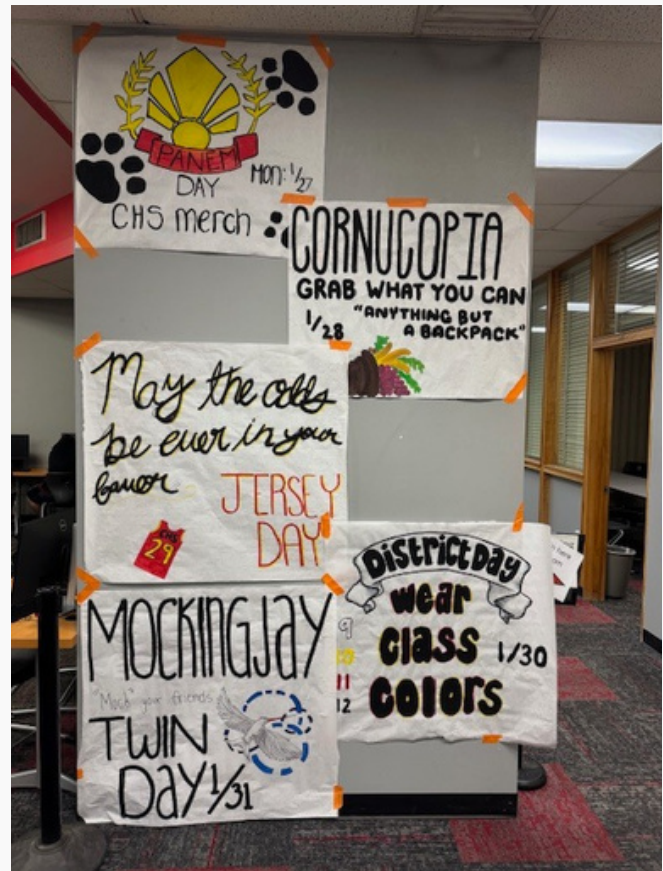 PANEM
DAY
MON: 1/27
CHS merch
CORNUCOPIA
GRAB WHAT YOU CAN
1/28
"ANYTHING BUT
A BACKPACK"
May the odds
be ever in your
favor
JERSEY
DAY
CHS
29
District Day
wear
class
colors
1/30
9
10
11
12
MOCKINGJAY
"Mock" your friends
TWIN
DAY 1/31